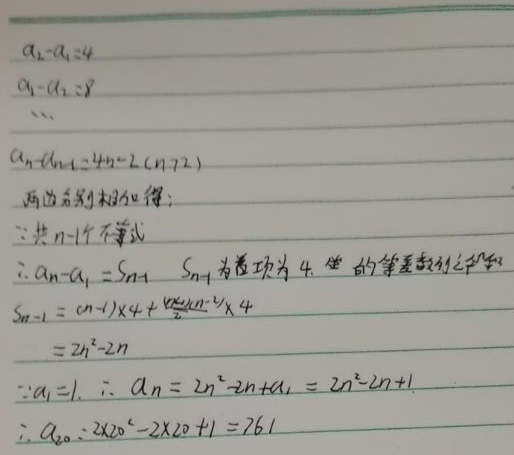 a₂-a₁=4
a₃-a₂=8
...
aₙ-aₙ₋₁=4n-2(n≥2)
两边分别相加得:
∵共n-1个不等式
∴aₙ-a₁=Sₙ₋₁ Sₙ₋₁为首项为4. 的等差数列之和
Sₙ₋₁=(n-1)×4+(n-1)(n-2)/2×4
=2n²-2n
∵a₁=1. ∴aₙ=2n²-2n+a₁=2n²-2n+1
∴a₂₀=2×20²-2×20+1=761